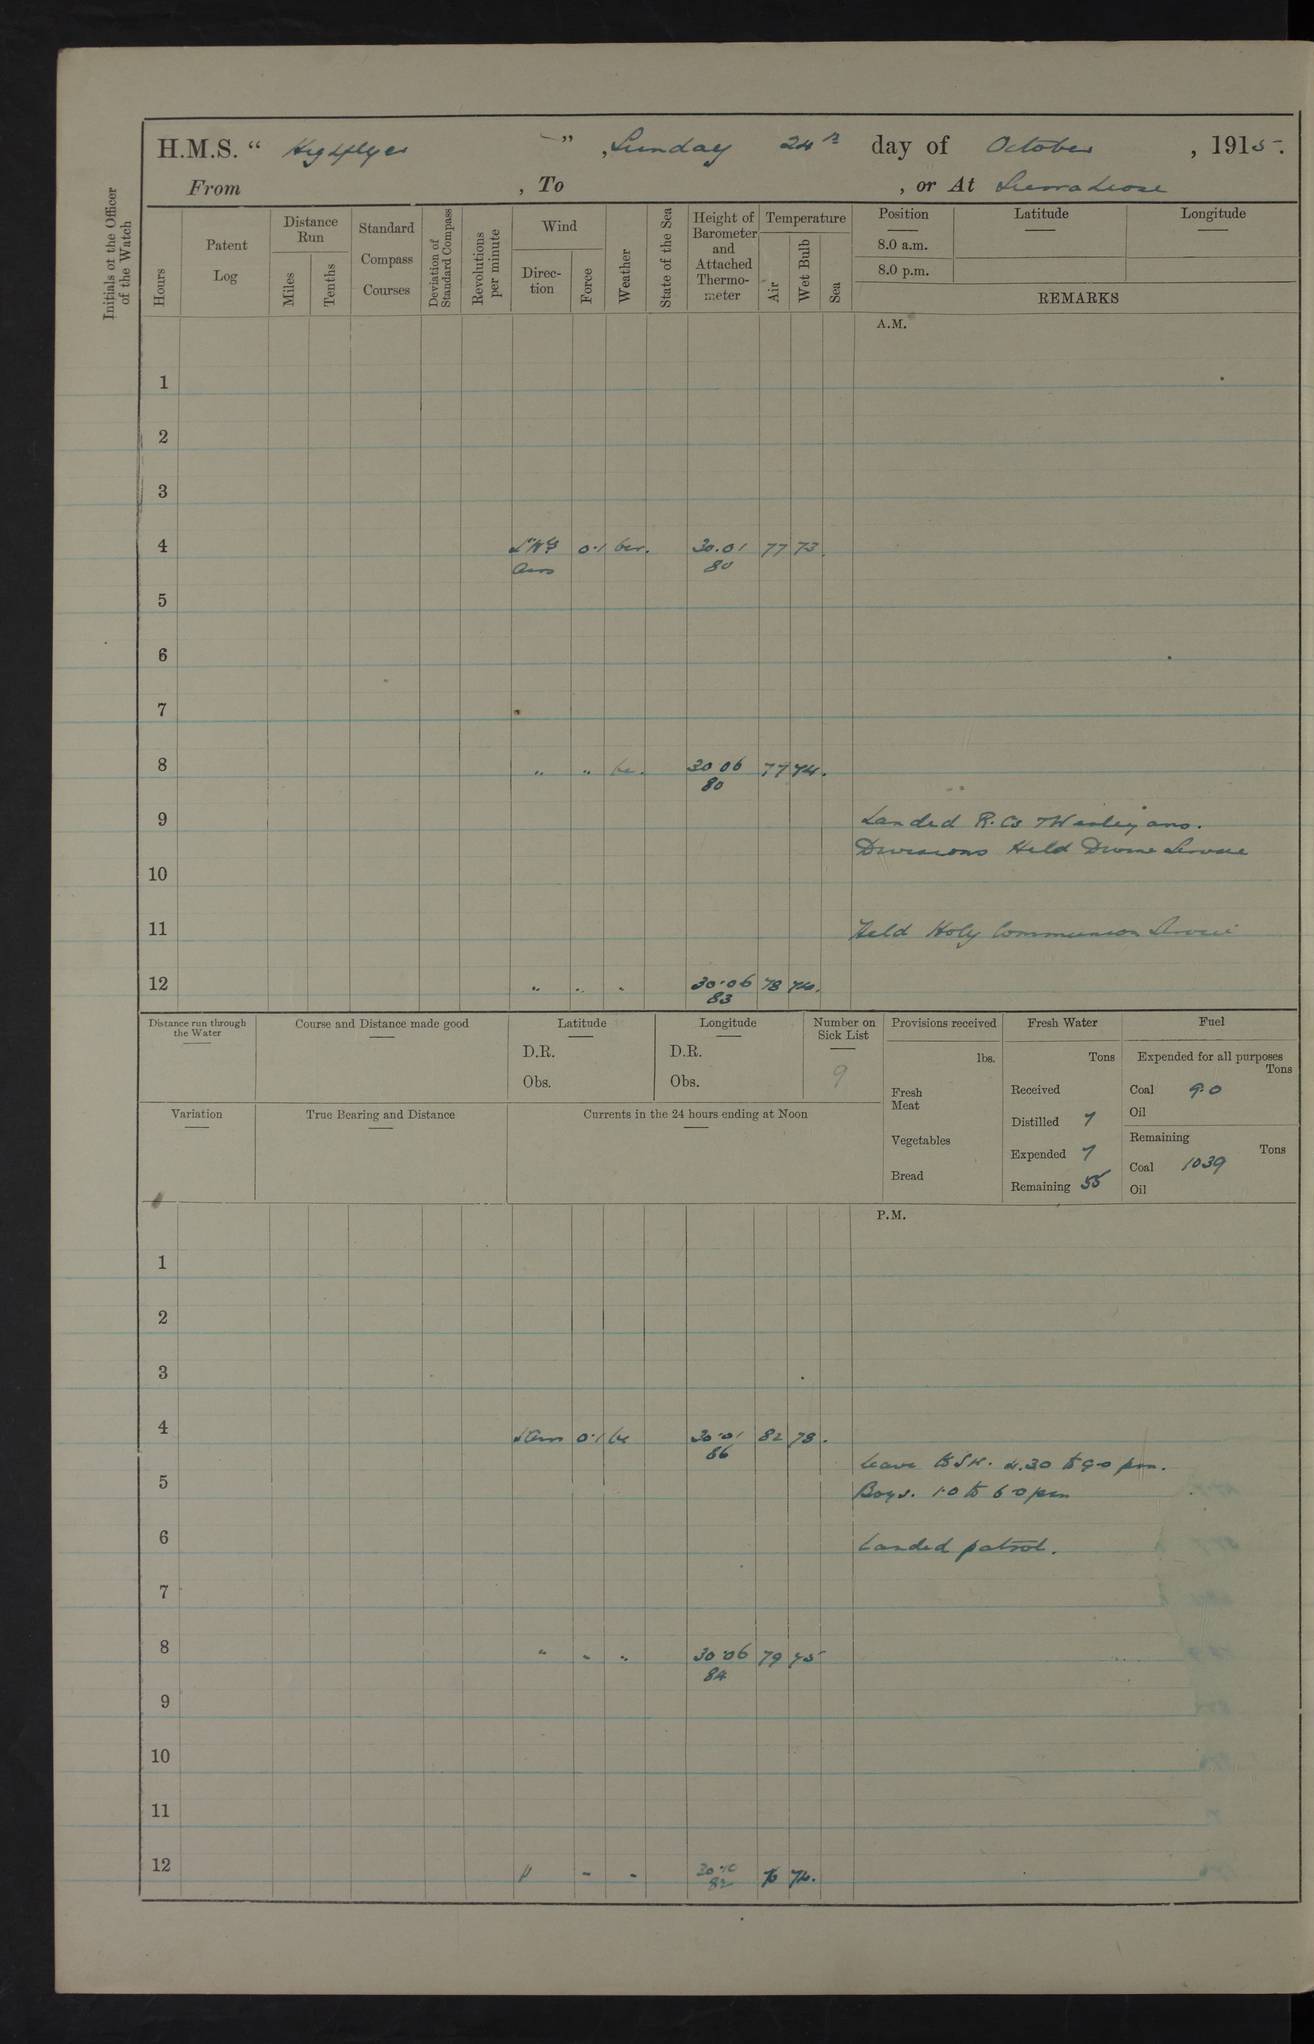 H.M.S. “ Highflyer ” , Sunday 24th day of October , 1915.
From , To , or At Sierra Leone
Initials of the Officer of the Watch
Hours
Patent Log
Distance Run
Miles
Tenths
Standard Compass Courses
Deviation of Standard Compass
Revolutions per minute
Wind
Direction
Force
Weather
State of the Sea
Height of Barometer and Attached Thermometer
Temperature
Air
Wet Bulb
Sea
Position Latitude Longitude
8.0 a.m.
8.0 p.m.
REMARKS
A.M.
1
2
3
4 0.1 bcr. 30.01 77 73.
airs 80
5
6
7
8 " " bc. 30.06 77 74.
80
9 Landed R.Cs & Wesleyans.
Divisions Held Divine Service
10
11 Held Holy Communion Service
12 " " " 30.06 78 74.
83
Distance run through the Water
Course and Distance made good
Latitude
D.R.
Obs.
Longitude
D.R.
Obs.
Number on Sick List
9
Provisions received
lbs.
Fresh Meat
Vegetables
Bread
Fresh Water
Tons
Received
Distilled 7
Expended 7
Remaining 55
Fuel
Expended for all purposes
Tons
Coal 9.0
Oil
Remaining
Tons
Coal 1039
Oil
Variation
True Bearing and Distance
Currents in the 24 hours ending at Noon
P.M.
1
2
3
4 0.1 bc 30.01 82 78.
86
Leave to 4.30 to 9.0 pm.
5 Boys. 1.0 to 6.0 pm
6 Landed patrol.
7
8 " " " 30.06 79 75
84
9
10
11
12 " " " 30.10 76 74.
82